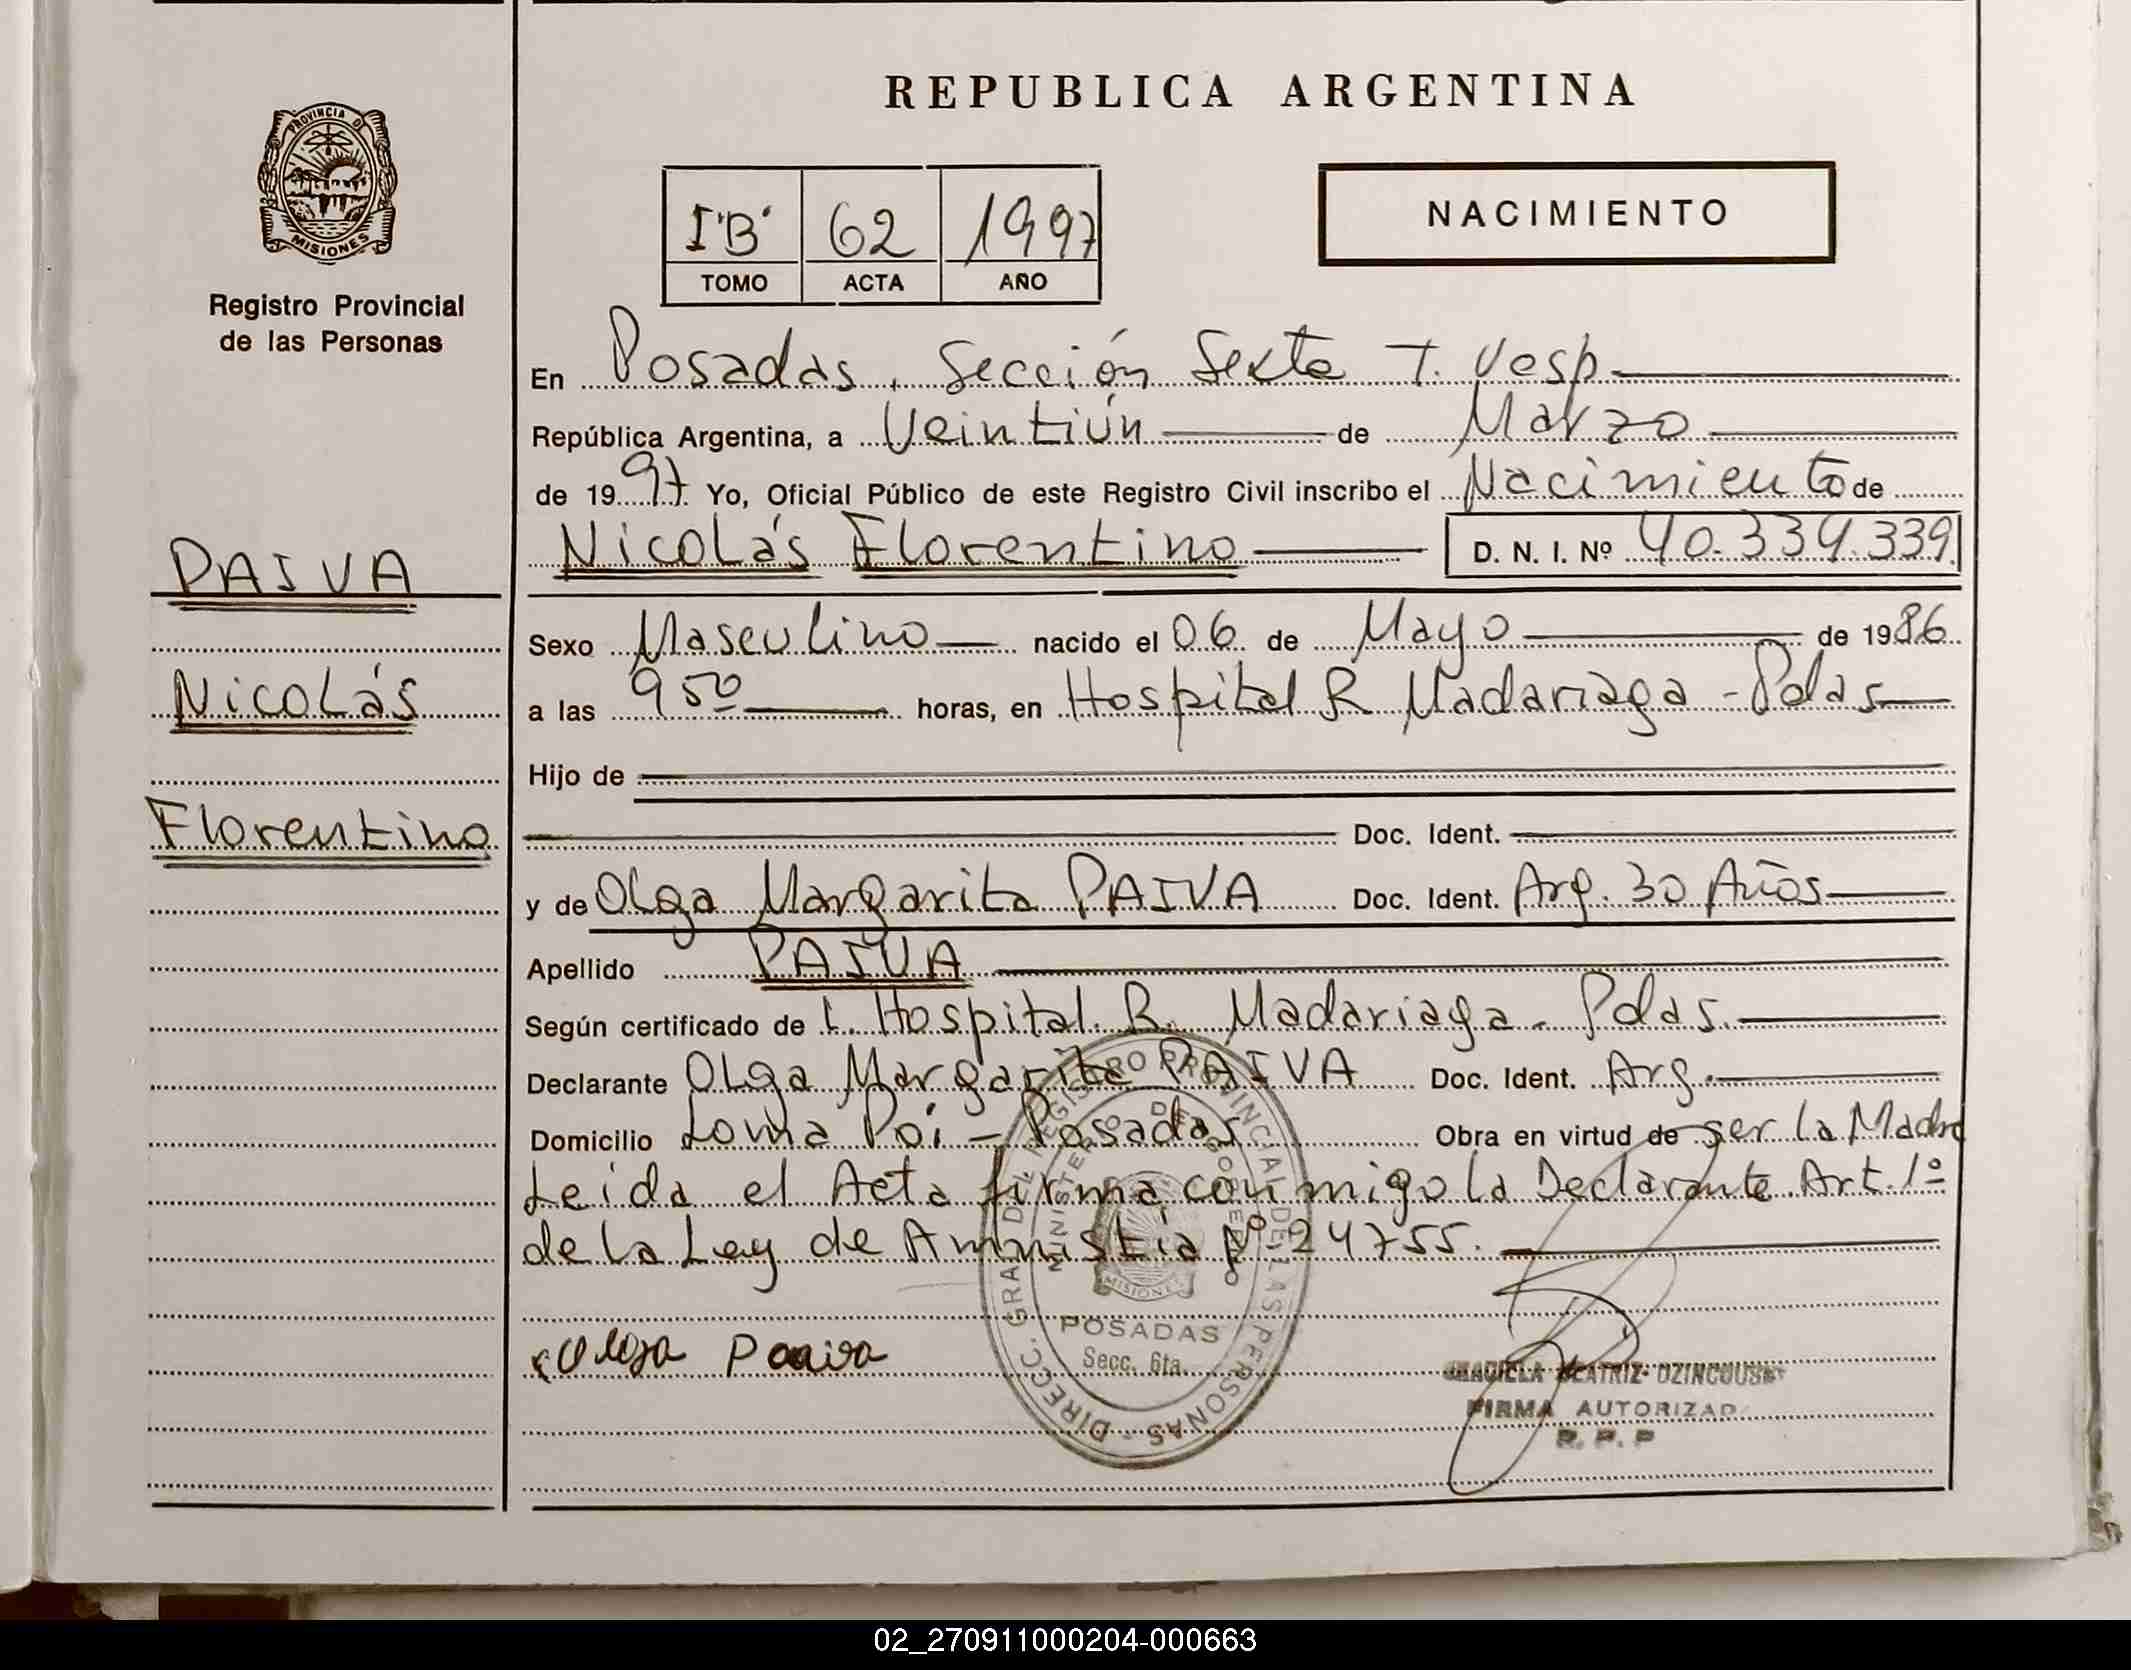 REPUBLICA ARGENTINA
PROVINCIA DE
MISIONES
Registro Provincial
de las Personas
I "B" 62 1997
TOMO ACTA AÑO
NACIMIENTO
En Posadas, Sección Sexta T. Vesp
República Argentina, a Veintiún de Marzo
de 1997 Yo, Oficial Público de este Registro Civil inscribo el Nacimiento de
PAIVA
Nicolás
Florentino
Nicolás Florentino D. N. I. Nº 40.334.339
Sexo Masculino nacido el 06 de Mayo de 1986
a las 9 50 horas, en Hospital R Madariaga - Pdas
Hijo de
Doc. Ident.
y de Olga Margarita PAIVA Doc. Ident. Arg. 30 Años
Apellido PAIVA
Según certificado de l. Hospital R. Madariaga - Pdas.
Declarante Olga Margarita PAIVA Doc. Ident. Arg.
Domicilio Loma Poi - Posadas Obra en virtud de ser la Madre
Leída el Acta firma conmigo la Declarante Art. 1º
de la Ley de Amnistía Nº 24755.
Olga Paiva
DIRECC. GRAL. DEL REGISTRO PROVINCIAL DE LAS PERSONAS
MINISTERIO DE GOBIERNO
MISIONES
POSADAS
Secc. 6ta.
BEATRIZ
FIRMA AUTORIZADA
R. P. P
02_270911000204-000663